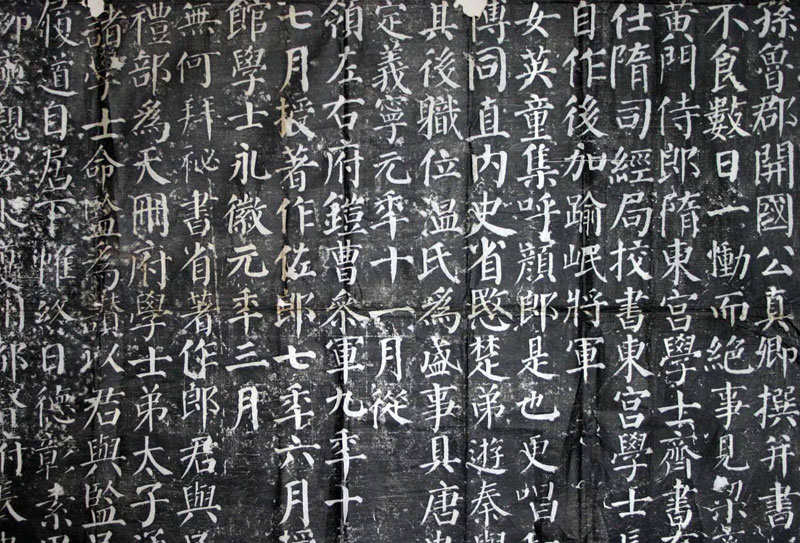 孫魯郡開國公真卿撰并書
不食數日一慟而絕事見梁
黃門侍郎隋東宮學士齊書
任隋司經局校書東宮學士長
自作後加踰岷將軍
女英童集呼顏郎是也更唱
博同直内史省愍楚弟遊秦與
其後職位溫氏為盛事具唐
定義寧元年十一月從
領左右府鎧曹參軍九年十
七月授著作佐郎七年六月授
館學士永徽元年三月
無何拜祕書省著作郎君與
禮部為天冊府學士弟太子
諸學士命監為讚以君與監
履道自居下帷終日德彰素